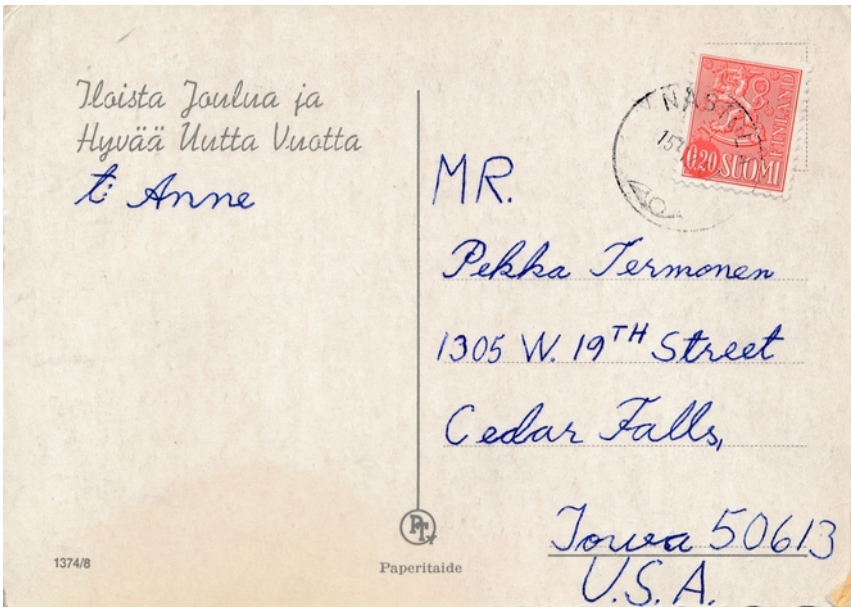 Iloista Joulua ja
Hyvää Uutta Vuotta
t: Anne
FINLAND
0.20 SUOMI
MR.
Pekka Termonen
1305 W. 19TH Street
Cedar Falls,
Iowa 50613
U.S.A.
PTy
1374/8
Paperitaide